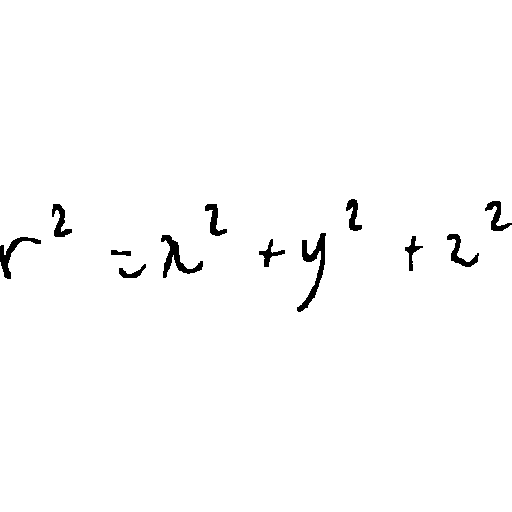 r² = x² + y² + z²